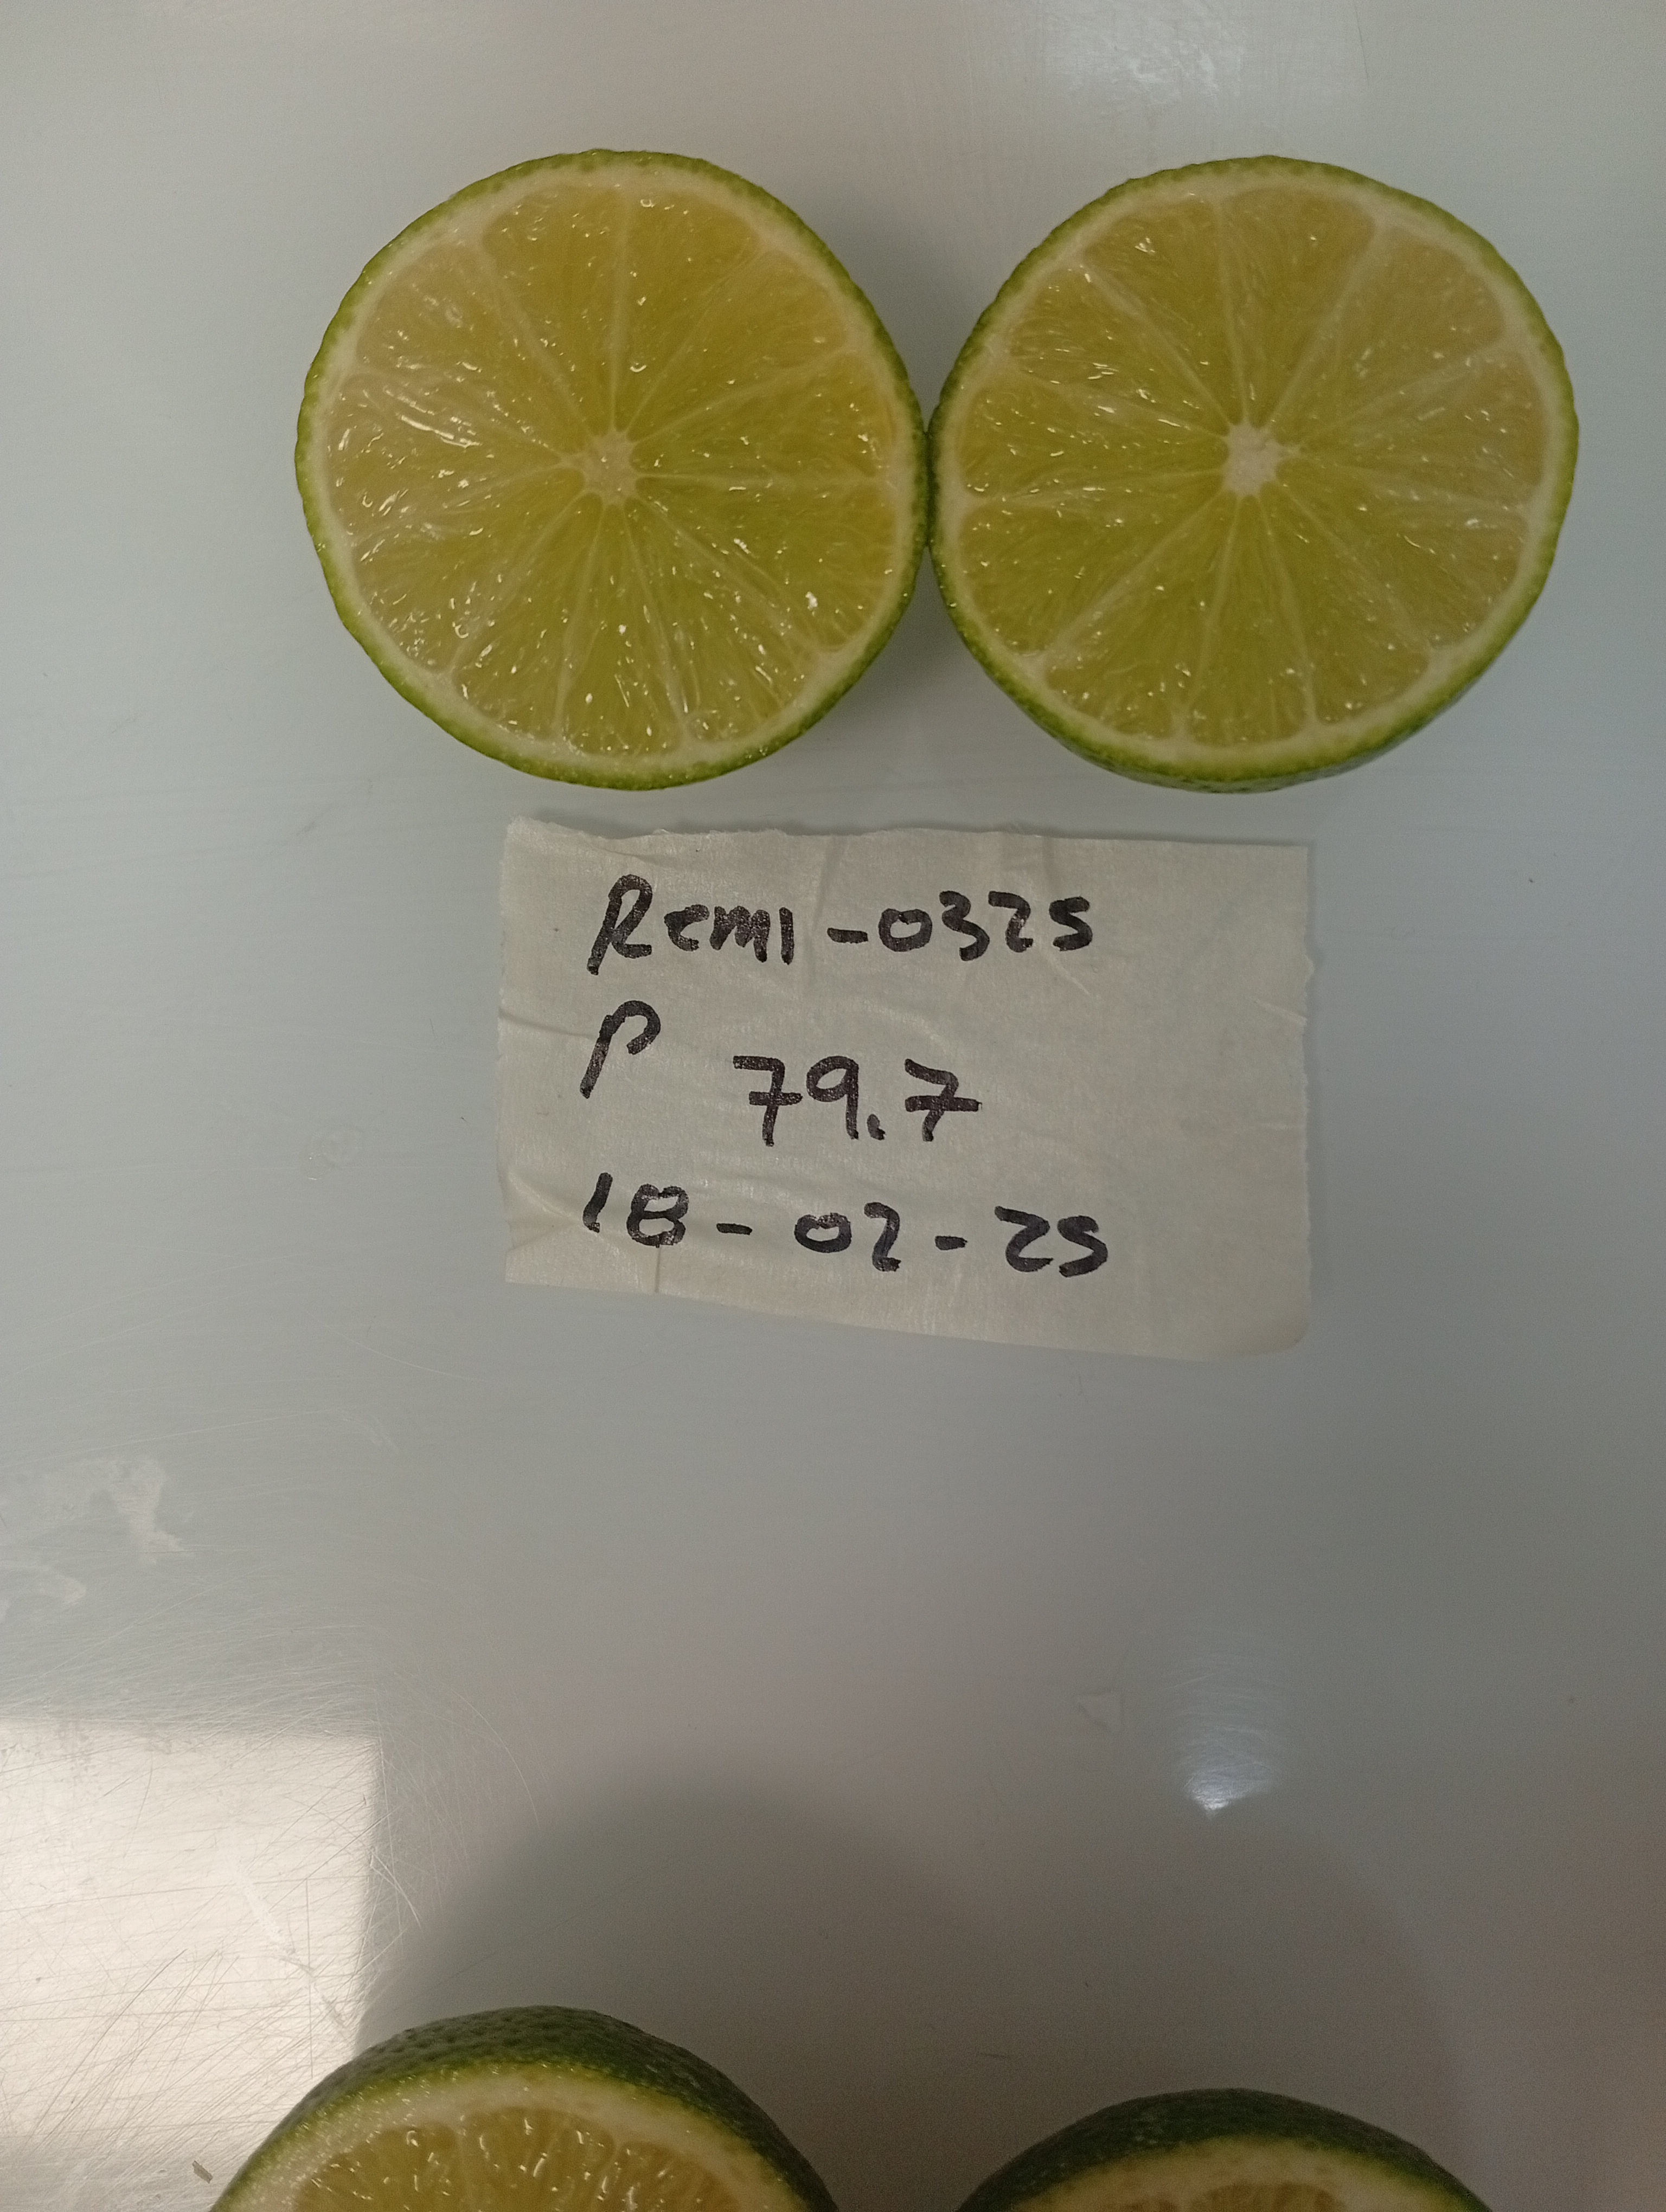 Remi-0325
P
79.7
18-02-25